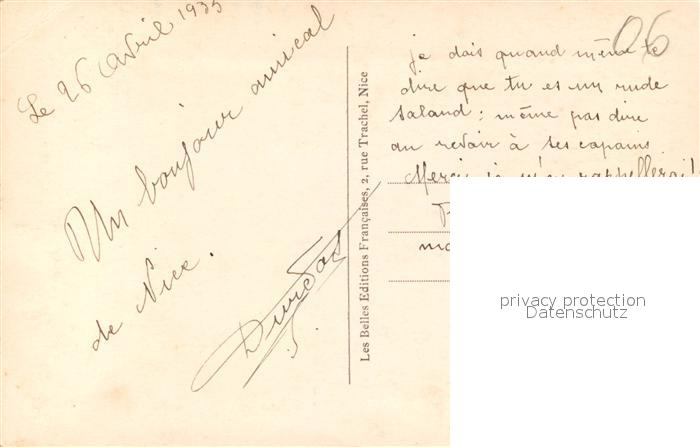 Le 26 Avril 1935
Un bonjour amical
de Nice.
Les Belles Editions Françaises, 2, rue Trachel, Nice
06
je dois quand même te
dire que tu es un rude
saland ; même pas dire
au revoir à ses copains
Merci je m'en rappellerai!
privacy protection
Datenschutz